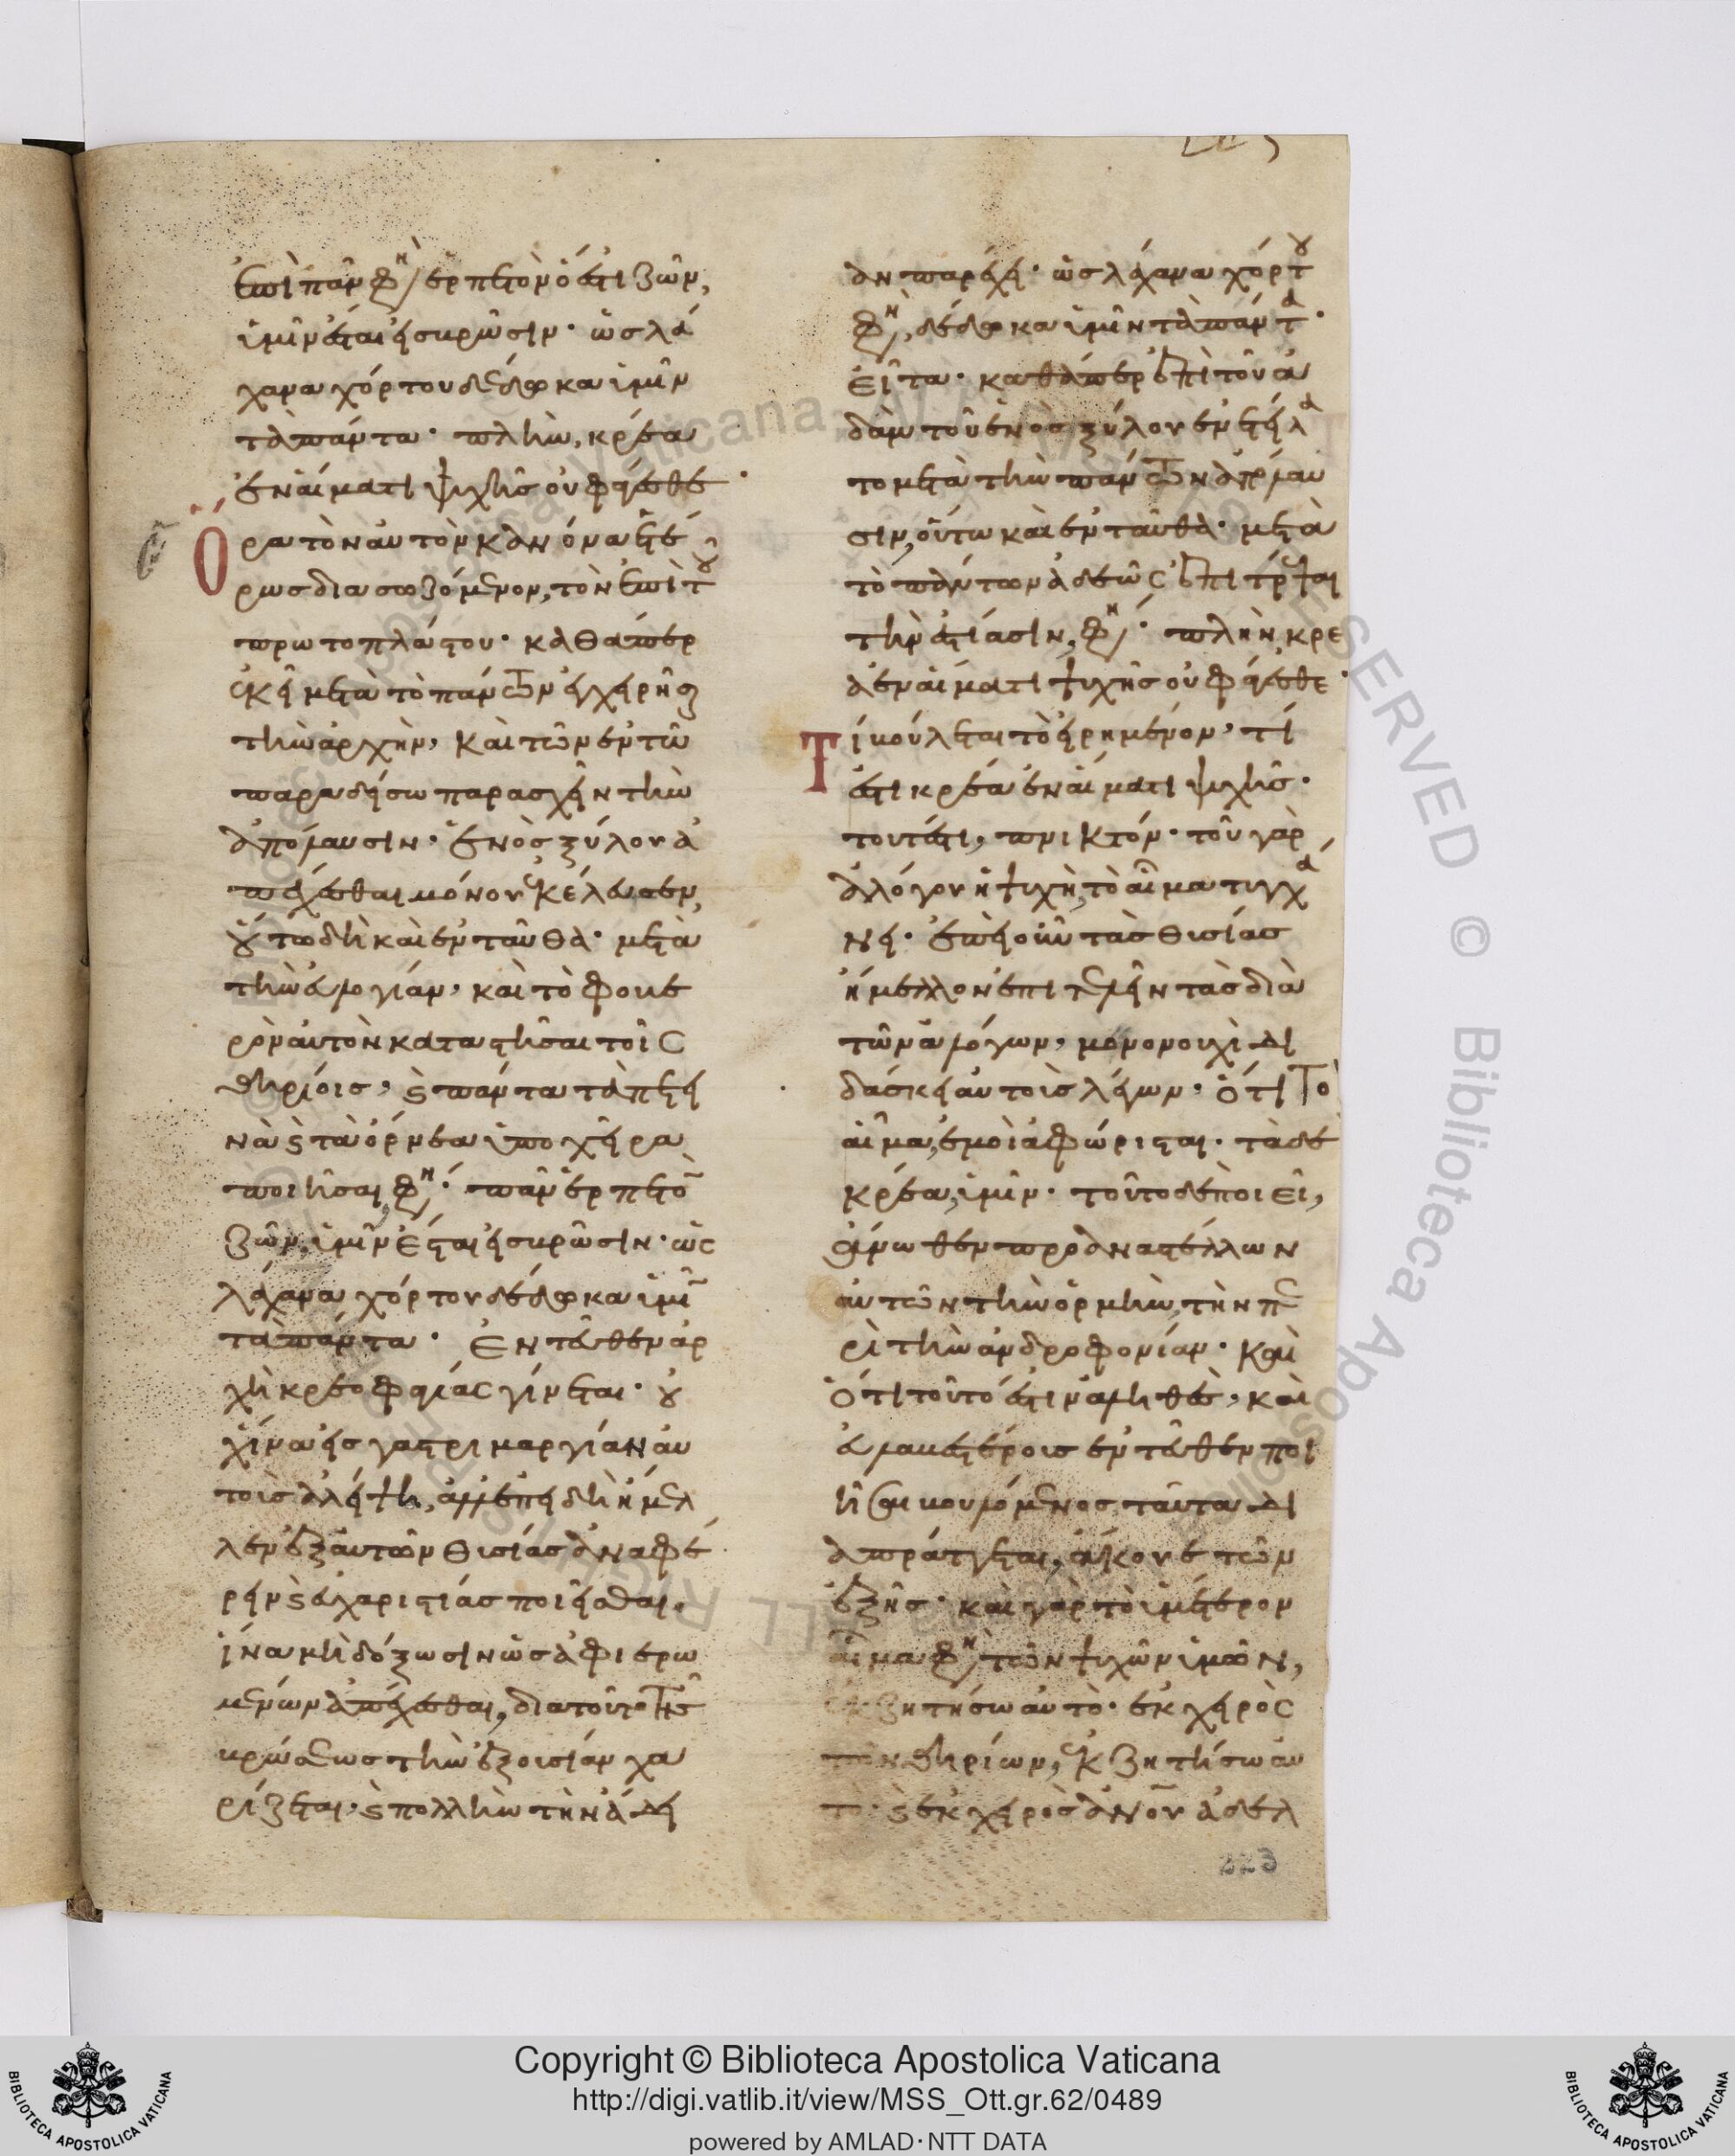 ἐπὶ πᾶν φη(σὶ) ἑρπετὸν ὅ ἐστι ζῶν,
ὑμῖν ἔσται εἰς βρῶσιν· ὡς λά
χανα χόρτου δέδωκα ὑμῖν
τὰ πάντα· πλὴν, κρέα
ἐν αἵματι ψυχῆς οὐ φάγεσθε·
Ὅρα τὸν αὐτὸν κανόνα ἑτέ
ρως διασωζόμενον, τὸν ἐπὶ τοῦ
πρωτοπλάστου· καθάπερ
ἐκεῖ μετὰ τὸ πάντων ἐγχειρῆσαι
τὴν ἀρχὴν, καὶ τῶν ἐν τῶ
παραδείσω παρασχεῖν τὴν
ἀπόλαυσιν· ἑνὸς ξύλου ἀ
πέχεσθαι μόνου ἐκέλευσεν,
οὕτω δὴ καὶ ἐνταῦθα· μετὰ
τὴν εὐλογίαν, καὶ τὸ φοβε
ρὸν αὐτὸν καταστῆσαι τοῖς
θηρίοις, καὶ πάντα τὰ πετει
νὰ καὶ τὰ ὄρνεα ὑπο χεῖρα
ποιῆσαι, φησί· πᾶν ἑρπετὸν
ζῶν, ὑμῖν ἔσται εἰς βρῶσιν· ὡς
λάχανα χόρτου δέδωκα ὑμῖν
τὰ πάντα· Ἐντεῦθεν ἀρ
χὴ κρεοφαγίας γίνεται· οὐ
χ ἵνα εἰς γαστριμαργίαν αὐ
τοὺς ἀλείψη, ἀλλ' ἐπειδὴ ἤμελ
λεν ἐξ αὐτῶν θυσίας ἀναφέ
ρειν καὶ εὐχαριστίας ποιεῖσθαι.
ἵνα μὴ δόξωσιν ὡς ἀφιερω
μένων ἀπέχεσθαι, δια τοῦτο τῆς
βρώσεως τὴν ἐξουσίαν χα
ρίζεται, καὶ πολλὴν τὴν ἄδει
αν παρέχει· ὡς λάχανα χόρτου
φησὶ, δέδωκα ὑμῖν τὰ πάντα·
εἶτα· καθάπερ ἐπὶ τοῦ ἀ
δὰμ τοῦ ἑνὸς ξύλου ἐνετείλα
το μετὰ τὴν πάντων ἀπόλαυ
σιν, οὕτω καὶ ἐνταῦθα· μετὰ
τὸ πάντων ἀδεῶς ἐπιτρέψαι
τὴν ἑστίασιν, φησί· πλὴν κρέ
α ἐν αἵματι ψυχῆς οὐ φάγεσθε·
Τί βούλεται τὸ εἰρημένον, τί
ἐστι κρέα ἐν αἵματι ψυχῆς·
τουτέστι, πνικτόν· τοῦ γὰρ
ἀλόγου ἡ ψυχὴ, τὸ αἷμα τυγχά
νει· ἐπεὶ οὖν τὰς θυσίας
ἤμελλον ἐπιτελεῖν τὰς διὰ
τῶν ἀλόγων, μόνον οὐχὶ δι
δάσκει αὐτοὺς λέγων, ὅτι τὸ
αἷμα, ἐμοὶ ἀφώρισται· τὰ δὲ
κρέα, ὑμῖν· τοῦτο δὲ ποιεῖ,
ἄνωθεν προαναστέλλων
αὐτῶν τὴν ὁρμὴν, τὴν πε
ρὶ τὴν ἀνδροφονίαν· καὶ
ὅτι τοῦτό ἐστιν ἀληθὲς, καὶ
εὐλαβεστέρους ἐντεῦθεν ποι
ῆσαι βουλόμενος ταῦτα δι
απράττεται, ἄκουε τῶν
ἑξῆς· καὶ γὰρ τὸ ὑμέτερον
αἷμα φησὶ τῶν ψυχῶν ὑμῶν,
ἐκζητήσω αὐτὸ· ἐκ χειρὸς
τῶν θηρίων, ἐκζητήσω αὐ
τὸ· καὶ ἐκ χειρὸς ἀνου ἀδελ
223
Copyright © Biblioteca Apostolica Vaticana
http://digi.vatlib.it/view/MSS_Ott.gr.62/0489
powered by AMLAD·NTT DATA
BIBLIOTECA APOSTOLICA VATICANA
BIBLIOTECA APOSTOLICA VATICANA